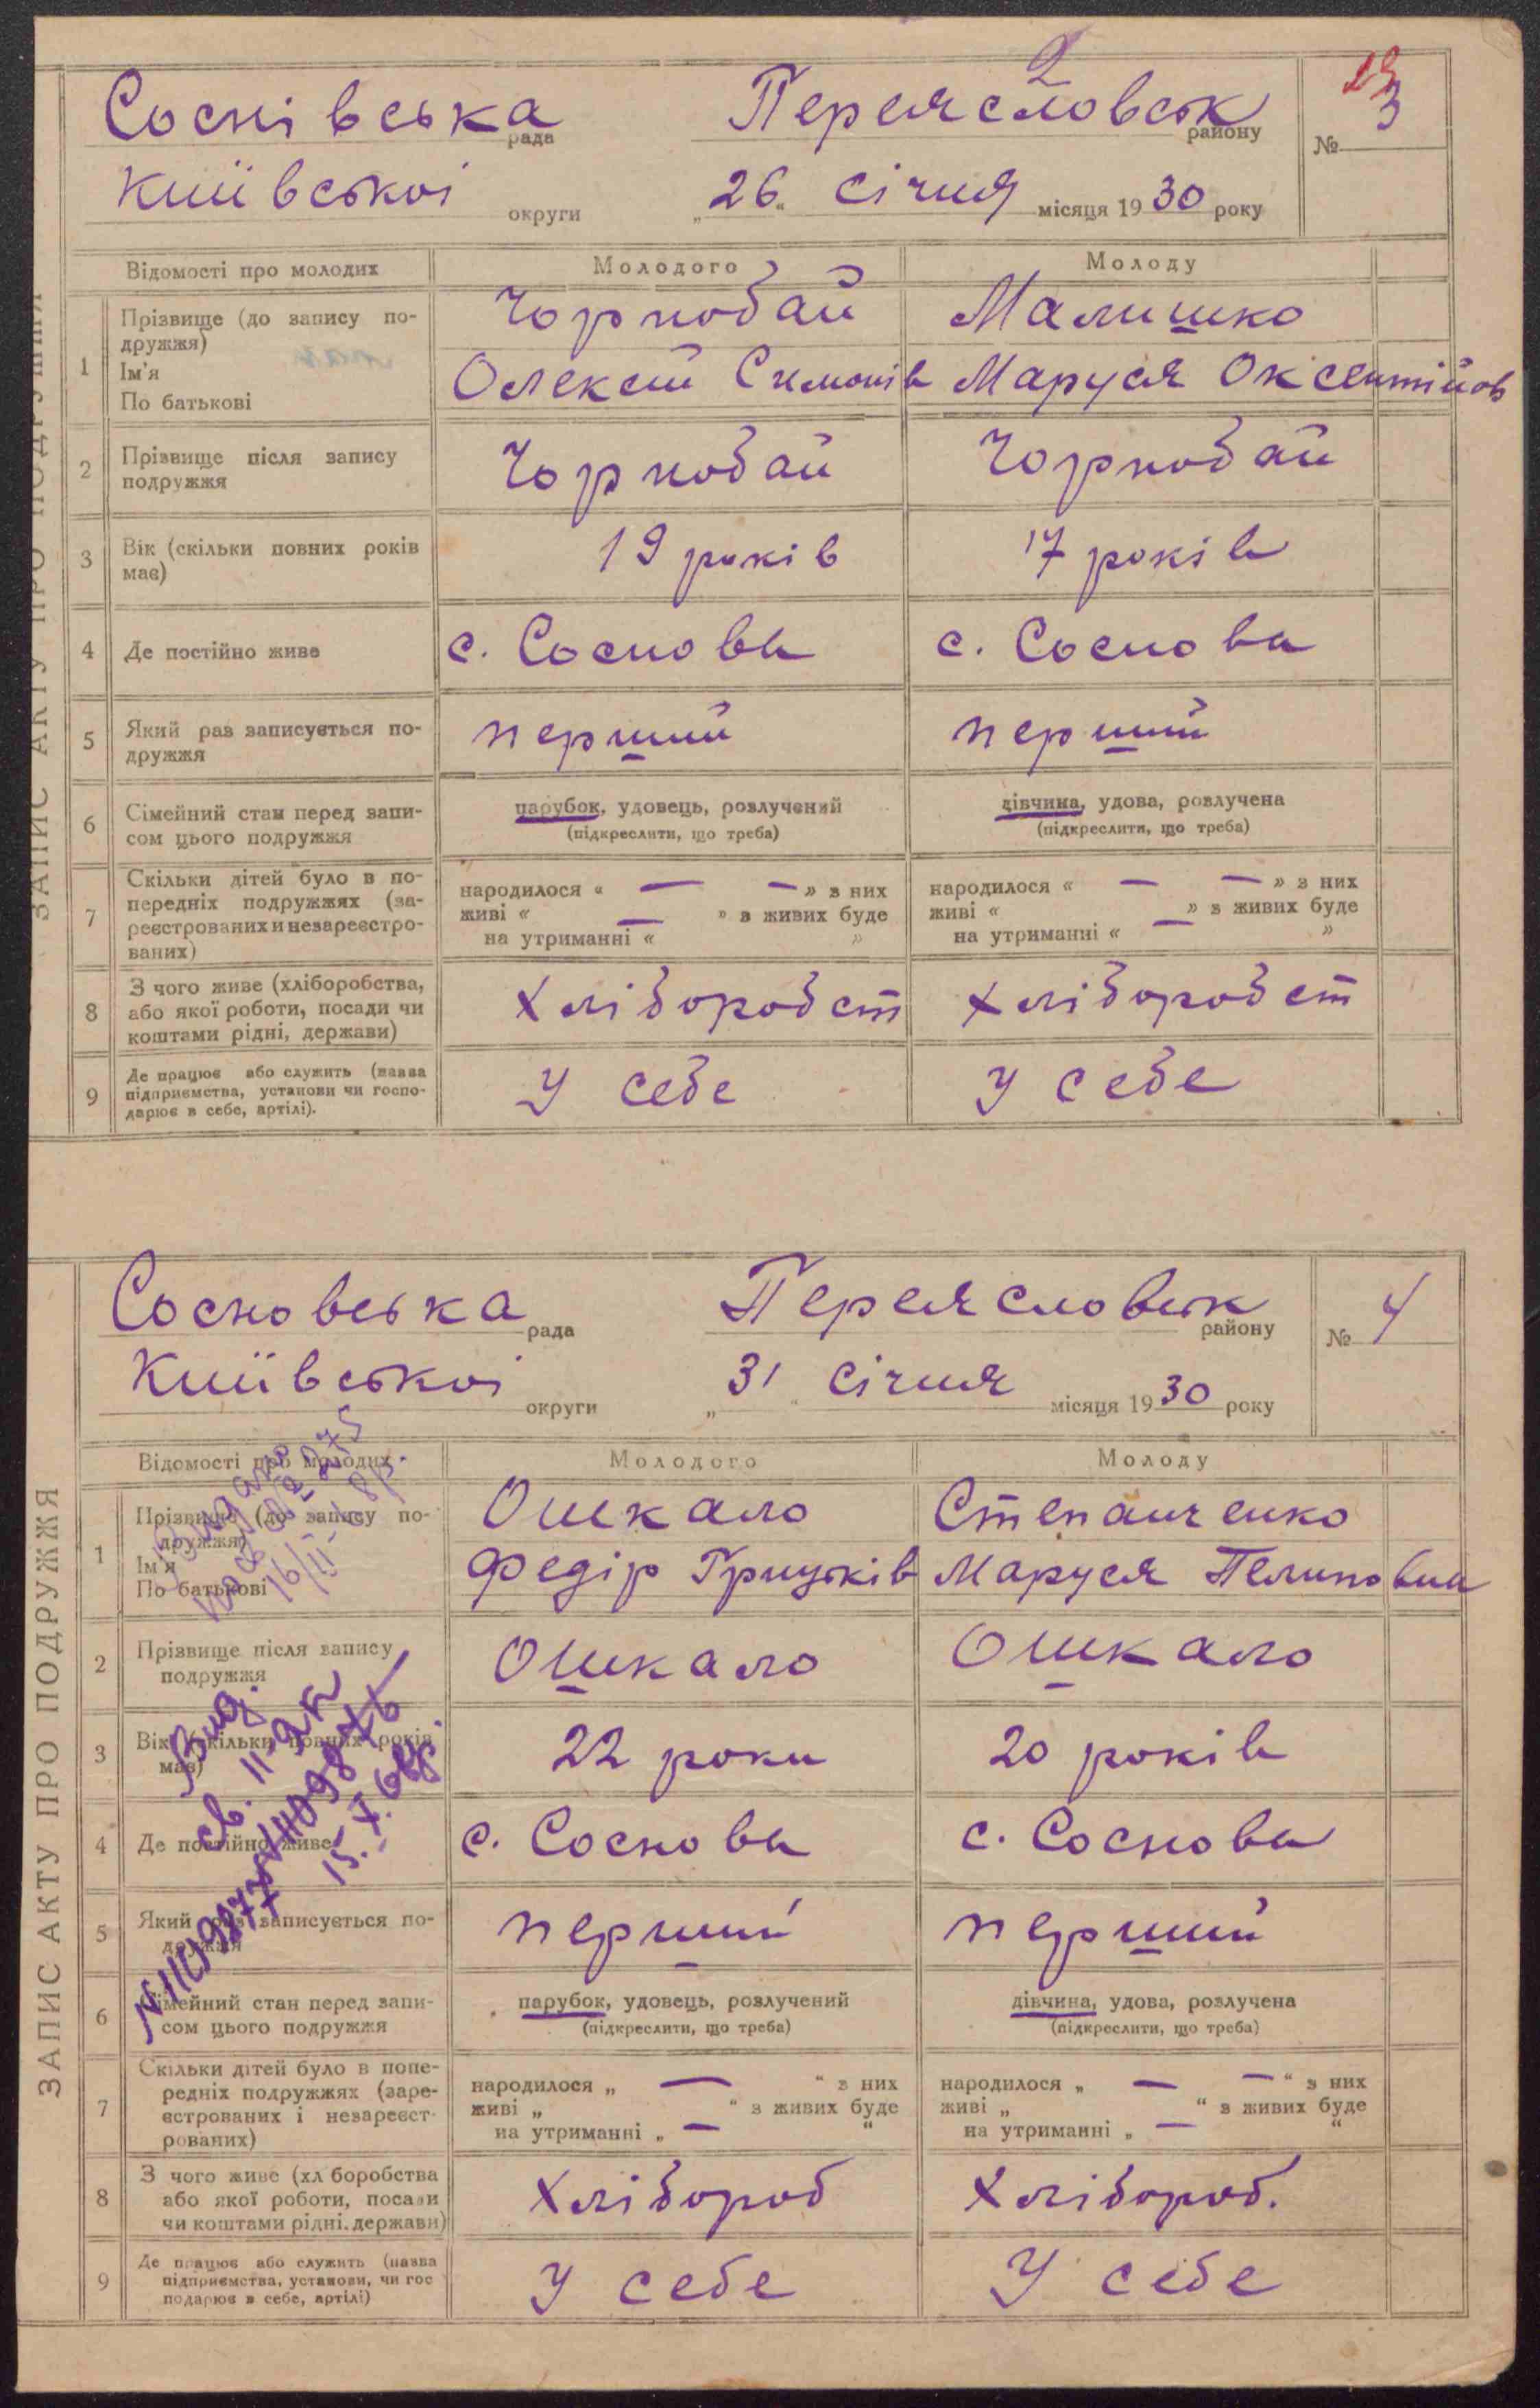 2
Соснівська рада Переясловськ району № 3
Київськоі округи „26“ січня місяця 1930 року
ЗАПИС АКТУ ПРО ПОДРУЖЖЯ
Відомості про молодих Молодого Молоду
1 Прізвище (до запису по- Чорнобай Малишко
дружжя)
Ім'я Олексій Симонів Маруся Оксентійов
По батькові
2 Прізвище після запису Чорнобай Чорнобай
подружжя
3 Вік (скільки повних років 19 років 17 років
має)
4 Де постійно живе с. Соснова с. Соснова
5 Який раз записується по- перший перший
дружжя
6 Сімейний стан перед запи- парубок, удовець, розлучений дівчина, удова, розлучена
сом цього подружжя (підкреслити, що треба) (підкреслити, що треба)
7 Скільки дітей було в по-
передніх подружжях (за- народилося « — — » з них народилося « — — » з них
реєстрованих и незареєстро- живі « — » з живих буде живі « — » з живих буде
ваних) на утриманні « » на утриманні « »
8 З чого живе (хліборобства,
або якої роботи, посади чи Хліборобст Хліборобст
коштами рідні, держави)
9 Де працює або служить (назва
підприємства, установи чи госпо- У себе У себе
дарює в себе, артілі).
Сосновська рада Переясловськ району № 4
Київськоі округи „31“ січня місяця 1930 року
ЗАПИС АКТУ ПРО ПОДРУЖЖЯ
Відомості про молодих Молодого Молоду
1 Прізвище (до запису по- Ошкало Степанченко
дружжя)
Ім'я Федір Грицьків Маруся Пелиповна
По батькові
2 Прізвище після запису Ошкало Ошкало
подружжя
3 Вік (скільки повних років 22 роки 20 років
має)
4 Де постійно живе с. Соснова с. Соснова
5 Який раз записується по- перший перший
дружжя
6 Сімейний стан перед запи- парубок, удовець, розлучений дівчина, удова, розлучена
сом цього подружжя (підкреслити, що треба) (підкреслити, що треба)
7 Скільки дітей було в попе-
редніх подружжях (заре- народилося „ — “ з них народилося „ — — “ з них
єстрованих і незареєст- живі „ “ з живих буде живі „ “ з живих буде
рованих) на утриманні „ — “ на утриманні „ — “
8 З чого живе (хл боробства
або якої роботи, посади Хлібороб Хлібороб.
чи коштами рідні. держави)
9 Де працює або служить (назва
підприємства, установи, чи гос У себе У себе
подарює в себе, артілі)
Вид.
св. II-